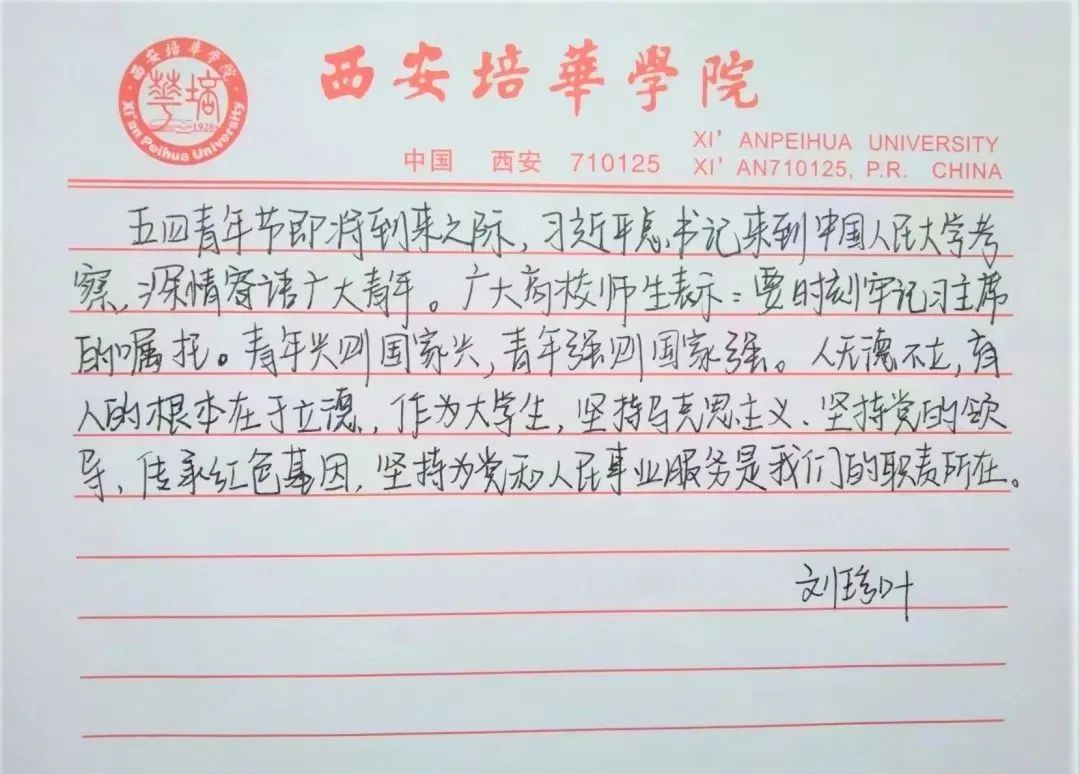 西安培華學院
华培
1928
Xi'an Peihua University
西安培華學院
XI' ANPEIHUA UNIVERSITY
中国 西安 710125 XI' AN710125, P.R. CHINA
五四青年节即将到来之际，习近平总书记来到中国人民大学考
察，深情寄语广大青年。广大高校师生表示：要时刻牢记习主席
的嘱托。青年兴则国家兴，青年强则国家强。人无德不立，育
人的根本在于立德，作为大学生，坚持马克思主义、坚持党的领
导、传承红色基因，坚持为党和人民事业服务是我们的职责所在。
刘珍叶